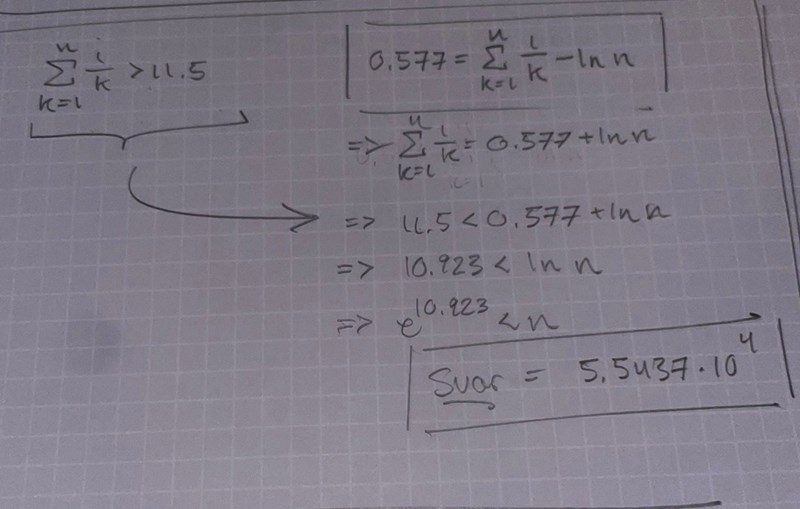 n
∑ 1/k > 11.5
k=1
0.577 = ∑_{k=1}^{n} 1/k − ln n
=> ∑_{k=1}^{n} 1/k = 0.577 + ln n
=> 11.5 < 0.577 + ln n
=> 10.923 < ln n
=> e^{10.923} < n
Svar = 5.5437 · 10^4